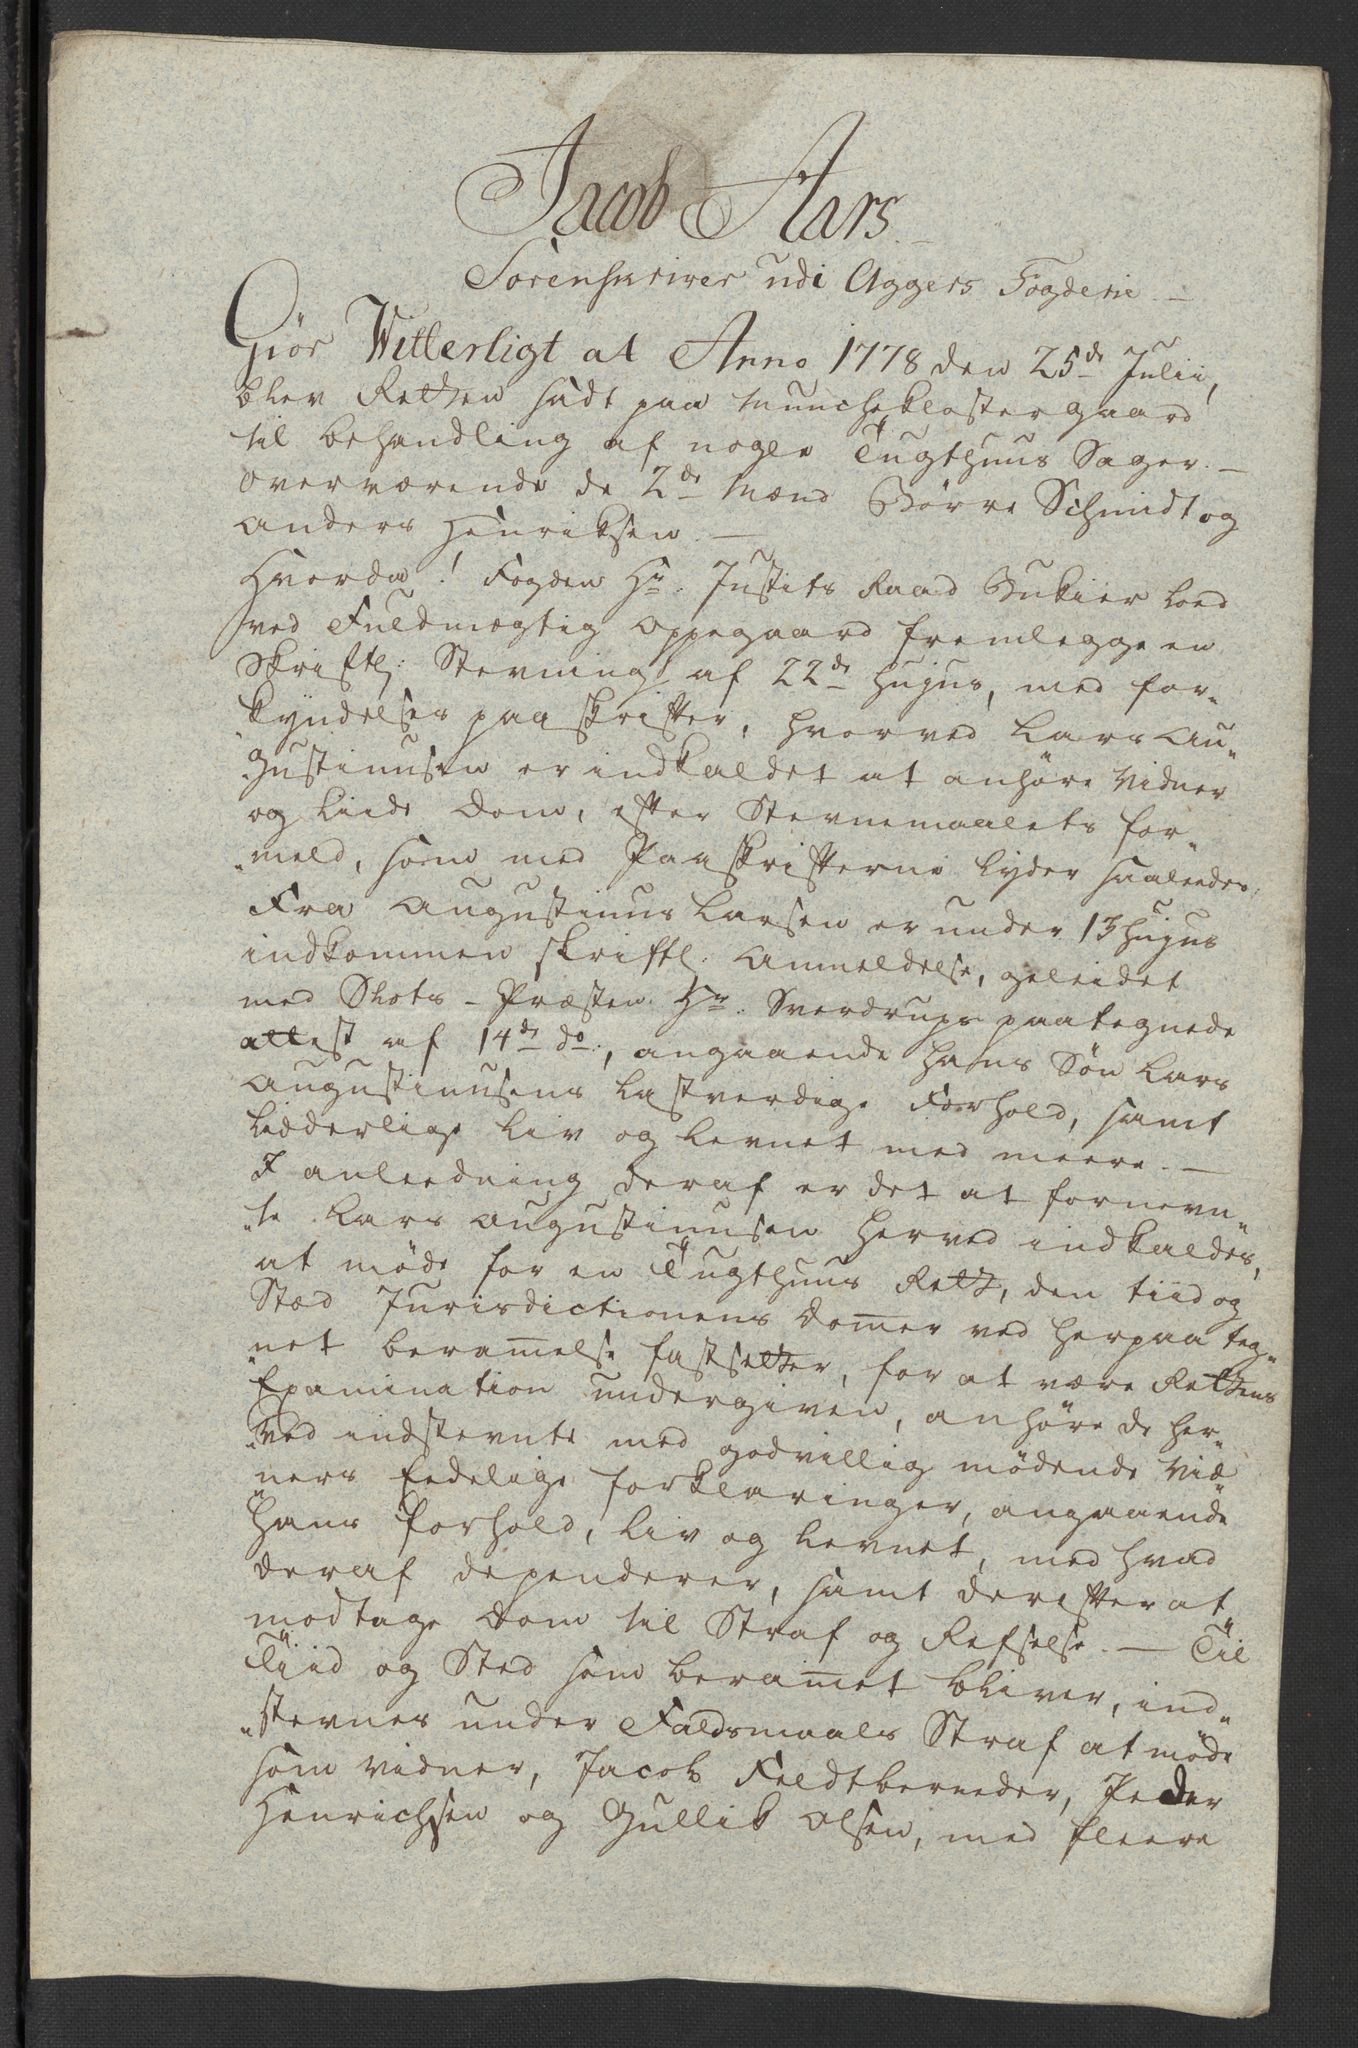 Jacob Aars
Sorenskriver udi Aggers Fogderie —
Giör Vitterligt at Anno 1778 den 25de Julii,
blev Retten sadt paa Muncheklostergaard
til behandling af nogle Tugthuus Sager. —
overværende de 2de Mænd Börre Schmidt og
Anders Henriksen —
Hvorda! Fogden Hr. Justits Raad Bukier loed
ved Fuldmægtig Oppegaard fremlegge en
Skriftl: Stevning af 22de hujus, med for„
„kyndelses paaskrifter, hvorved Lars Au„
„gustinusen er indkaldet at anhöre Vidner
og liide Dom, efter Stevnemaalets for„
„meld, som med Paaskrifterne lyder saaledes:
Fra Augustinus Larsen er under 13 hujus
indkommen skriftl: Anmeldelse, geleidet
med Slots-Præsten Hr. Sverdrups paategnede
attest af 14de do:, angaaende hans Sön Lars
Augustinusens lastverdige Forhold, samt
Lidderlige Liv og Levnet med meere. —
I anleedning deraf er det at fornevn„
„te Lars Augustinusen herved indkaldes,
at möde for en Tugthuus Rett, den tiid og
Stæd Jurisdictionens Domer ved herpaa teg„
„net beramelse fastsetter, for at være Rettens
Examination undergiven, anhöre de her„
„ved indstevnte med godvillig mödende Vid„
„ners Eedelige forklaringer, angaaende
hans Forhold, Liv og Levnet, med hvad
deraf dependerer, samt derefter at
modtage Dom til Straf og Refselse. — Til
Tiid og Sted som beramet bliver, ind„
„stevnes under Faldsmaals Straf at möde
som vidner, Jacob Feldtbereder, Peder
Henrichsen og Gullik Olsen, med fleere